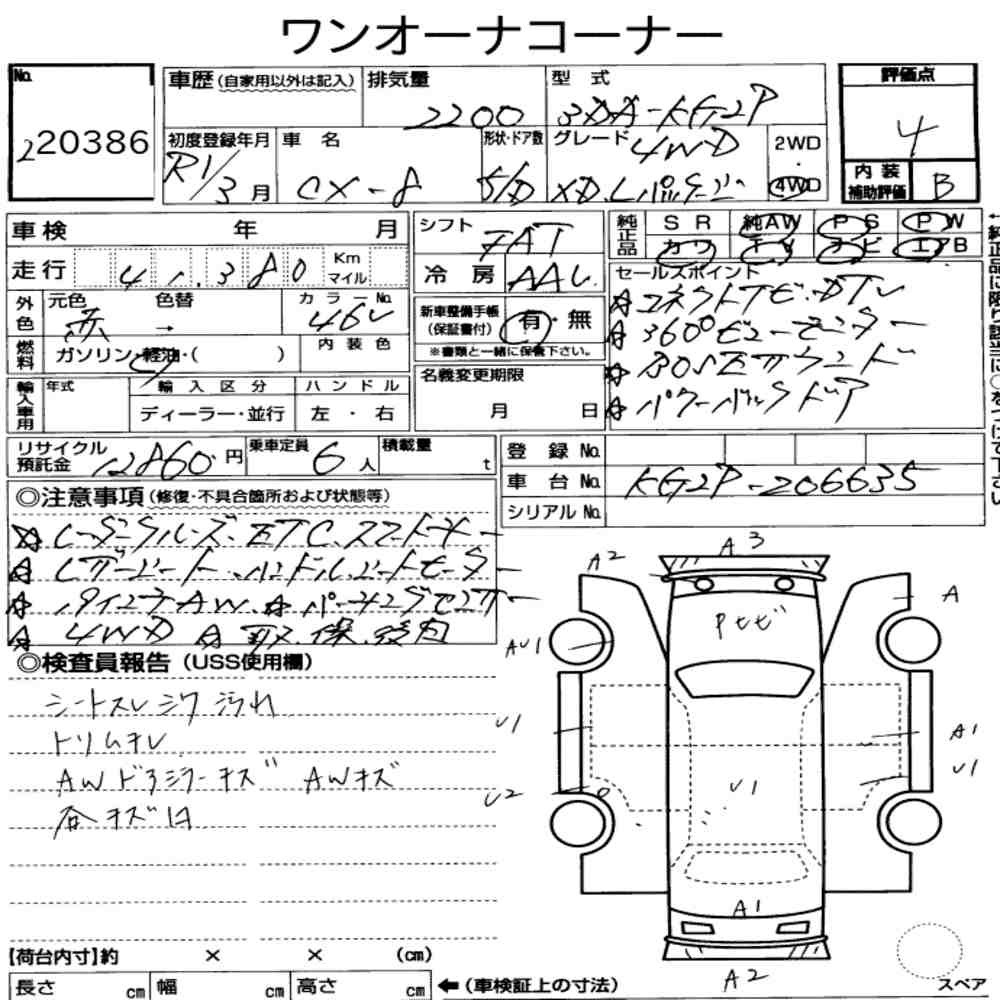 ワンオーナーコーナー
No. 220386
車歴(自家用以外は記入) 排気量 2200 型式 3DA-KG2P 評価点 4
初度登録年月 R1/3月 車名 CX-8 形状・ドア数 5/D グレード 4WD XD.Lパッケージ 2WD・4WD
内装補助評価 B
車検 年 月 シフト FAT 純正品 SR 純AW PS PW
カワ TV ナビ エアB
走行 41,380 Km マイル 冷房 AAC
セールスポイント
外色 元色 赤 色替 → カラーNo. 46V
新車整備手帳(保証書付) 有・無
※書類と一緒に保管下さい。
燃料 ガソリン・軽油・( ) 内装色
☆コネクトナビ.DTV
☆360°ビューモニター
☆BOSEサウンド
☆パワーバックドア
名義変更期限 月 日
輸入車用 年式 輸入区分 ディーラー・並行 ハンドル 左・右
リサイクル預託金 12860円 乗車定員 6人 積載量 t
登録No.
車台No. KG2P-206635
シリアルNo.
◎注意事項(修復・不具合箇所および状態等)
☆レーダークルーズ.ETC.スマートキー
☆レザーシート.ハンドル.シートヒーター
☆19インチAW.☆パーキングセンサー
☆4WD ☆取.保.
◎検査員報告(USS使用欄)
シートスレシワ汚れ
トリムキレ
AWドアミラーキズ AWキズ
各キズ凹
A2 A3 A
Pセビ
AU1
U1 A1
U1
U2 U1
A1
A2
【荷台内寸】約 × × (cm)
長さ cm 幅 cm 高さ cm ←(車検証上の寸法)
スペア
↑純正品に限り該当に○をつけて下さい